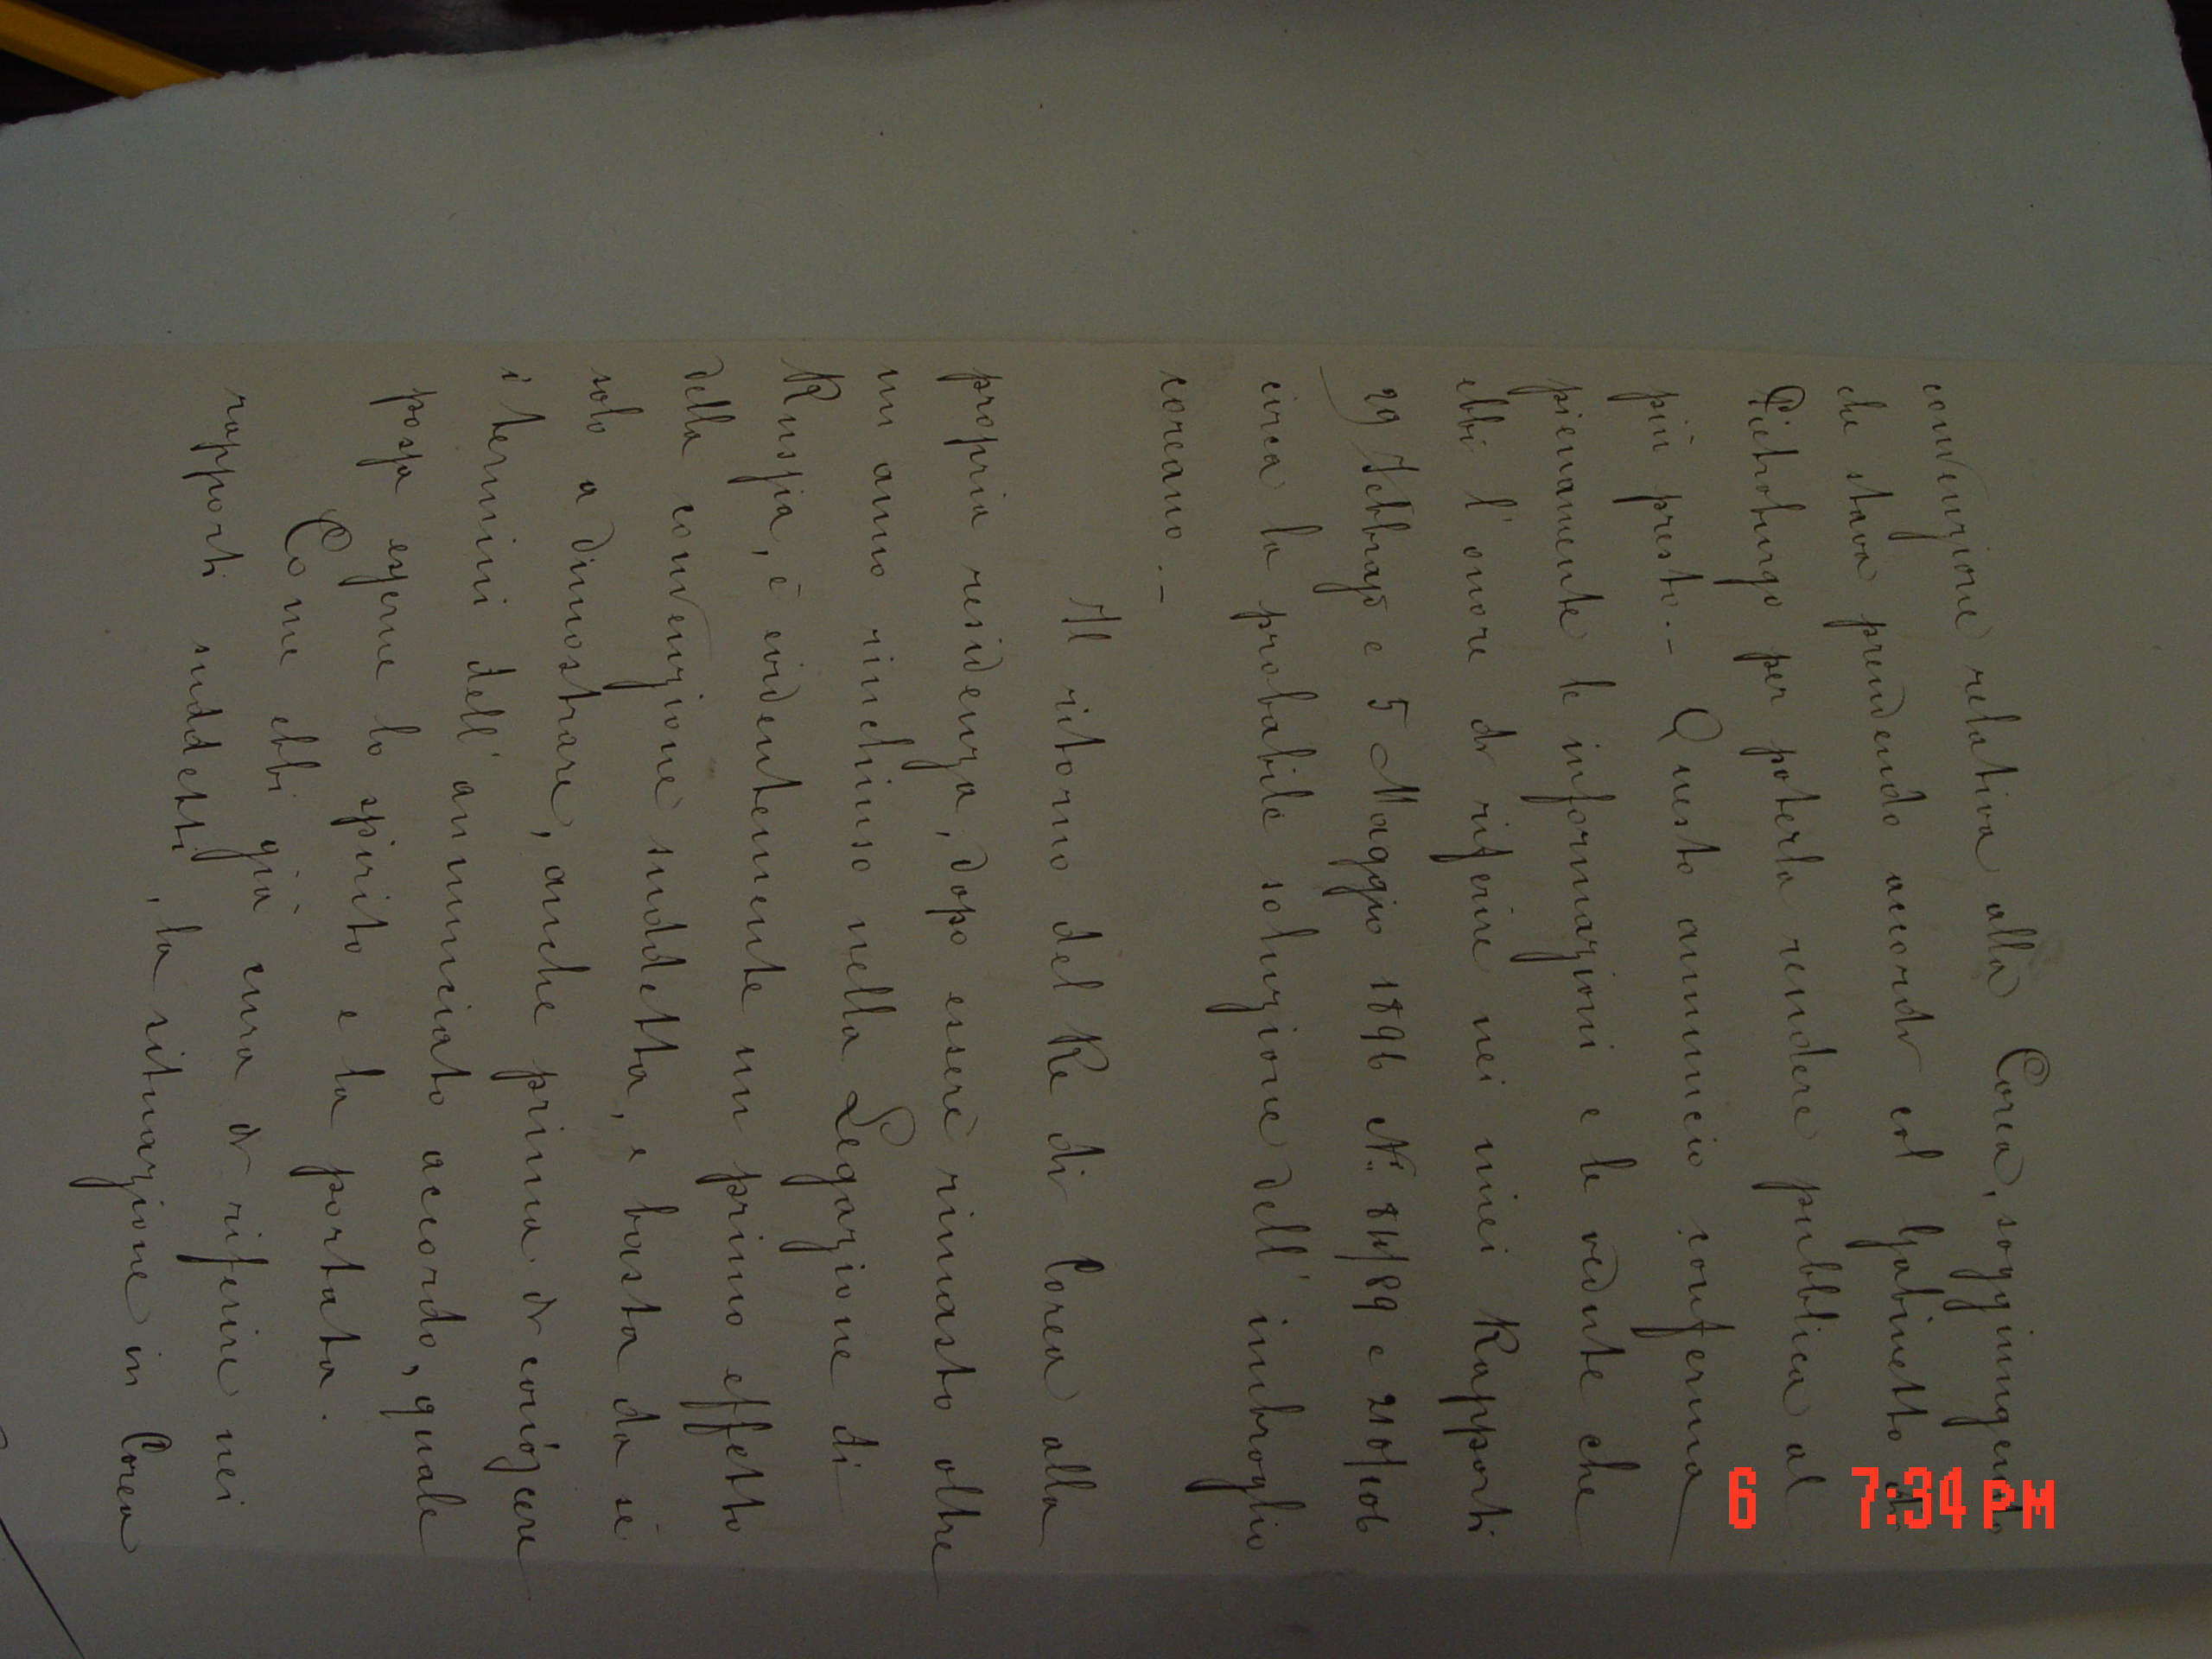 convenzione relativa alla Corea, soggiungendo
che stava prendendo accordi col Gabinetto di
Pietroburgo per poterla rendere pubblica al
più presto.- Questo annuncio conferma
pienamente le informazioni e le vedute che
ebbi l'onore di riferire nei miei Rapporti
29 Febbrajo e 5 Maggio 1896 N. 84/89 e 210/106
circa la probabile soluzione dell'imbroglio
coreano.-
Il ritorno del Re di Corea alla
propria residenza, dopo essere rimasto oltre
un anno rinchiuso nella Legazione di
Russia, è evidentemente un primo effetto
della convenzione suddetta, e basta da sè
solo a dimostrare, anche prima di conoscere
i termini dell'annunciato accordo, quale
possa esserne lo spirito e la portata.
Come ebbi già cura di riferire nei
rapporti suddetti, la situazione in Corea
6 7:34 PM